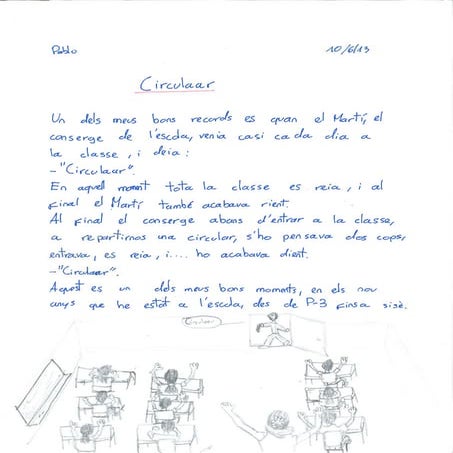 Pablo
10/6/13
Circulaar
Un dels meus bons records es quan el Martí, el
conserge de l'escola, venia casi cada dia a
la classe, i deia:
-"Circulaar".
En aquell moment tota la classe es reia, i al
final el Martí també acabava rient.
Al final el conserge abans d'entrar a la classe,
a repartirnos una circular, s'ho pensava dos cops,
entrava, es reia, i.... ho acabava dient.
-"Circulaar".
Aquest es un dels meus bons moments, en els nou
anys que he estat a l'escola, des de P-3 finsa sisè.
Circulaar